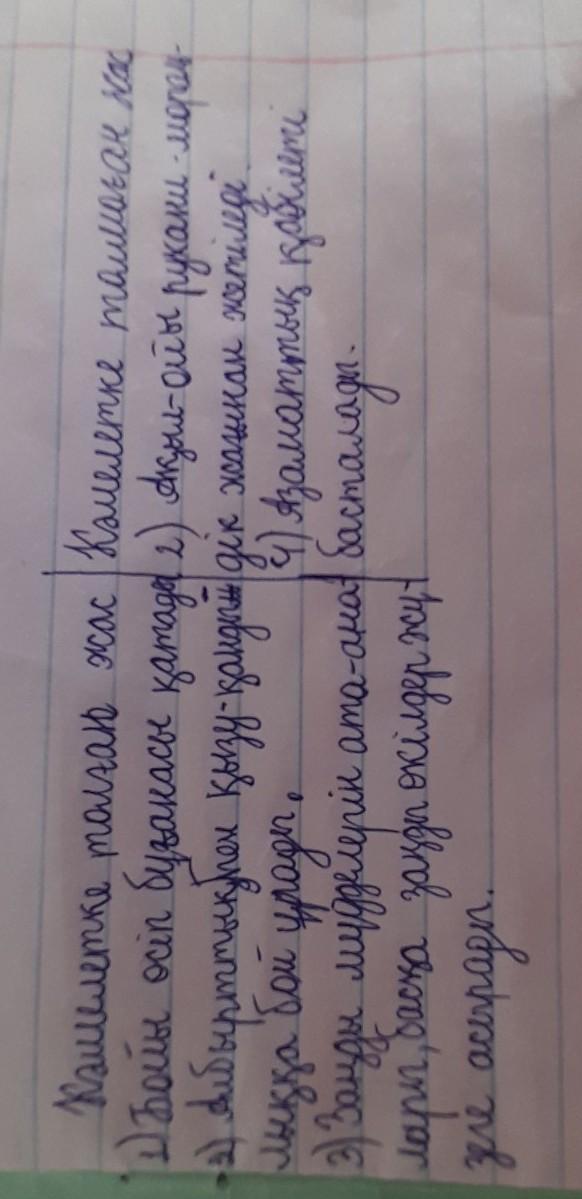 Кәмелетке толған жас
1) Бойы өсіп бұғанасы қатады
2) Албырттықпен қызу-қанды
лыққа бой ұрады.
3) Заңды мүдделерін ата-ана
лары, басқа заңды өкілдер жү-
зеге асырады.
Кәмелетке толмаған жас
2) Ақыл-ойы рухани-мораль-
дік жағынан жетіледі
4) Азаматтық қабілеті
басталады.